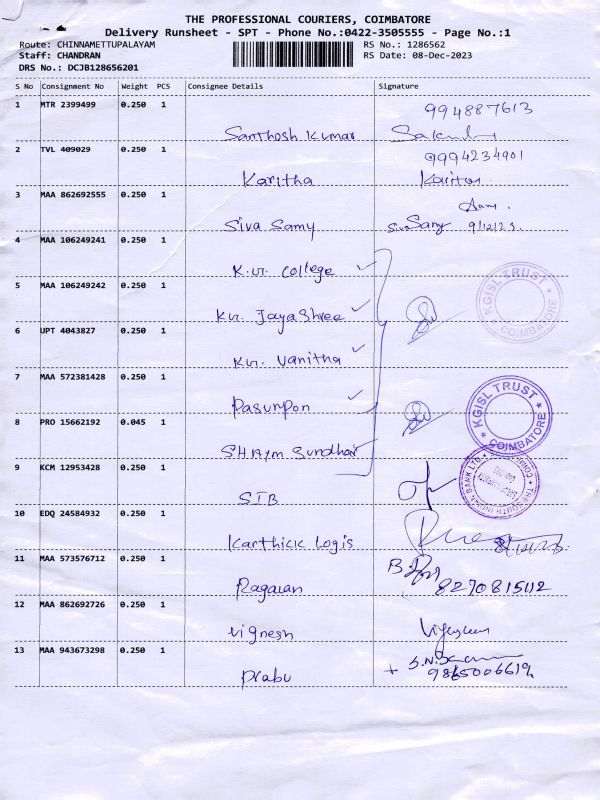 THE PROFESSIONAL COURIERS, COIMBATORE
Delivery Runsheet - SPT - Phone No.:0422-3505555 - Page No.:1
Route: CHINNAMETTUPALAYAM RS No.: 1286562
Staff: CHANDRAN RS Date: 08-Dec-2023
DRS No.: DCJB128656201
S No Consignment No Weight PCS Consignee Details Signature
1 MTR 2399499 0.250 1 994887613
Santhosh Kumar
2 TVL 409029 0.250 1 9994234901
Karitha
3 MAA 862692555 0.250 1
Siva Samy Siva Samy 9/12/23.
4 MAA 106249241 0.250 1
K.vr. college
5 MAA 106249242 0.250 1
Kvr. Jayashree
6 UPT 4043827 0.250 1
Kvr. Vanitha
KGISL TRUST
COIMBATORE
7 MAA 572381428 0.250 1
Pasunpon
8 PRO 15662192 0.045 1
SHAym Sundhar
KGISL TRUST
COIMBATORE
9 KCM 12953428 0.250 1
SIB
THE SOUTH INDIAN BANK LTD.
10 EDQ 24584932 0.250 1
Karthick Logis
11 MAA 573576712 0.250 1
Ragavan
12 MAA 862692726 0.250 1
vignesh
13 MAA 943673298 0.250 1
Prabu 9865006619